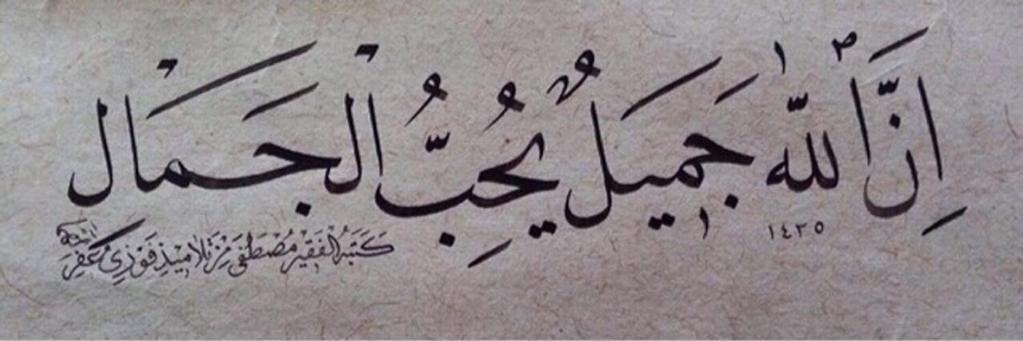 اِنَّ اللّٰهَ جَمِيلٌ يُحِبُّ الْجَمَالَ
١٤٣٥
كَتَبَهُ الْفَقِيرُ مُصْطَفَى مِنْ تَلَامِيذِ فَوْزِي غُفِرَ